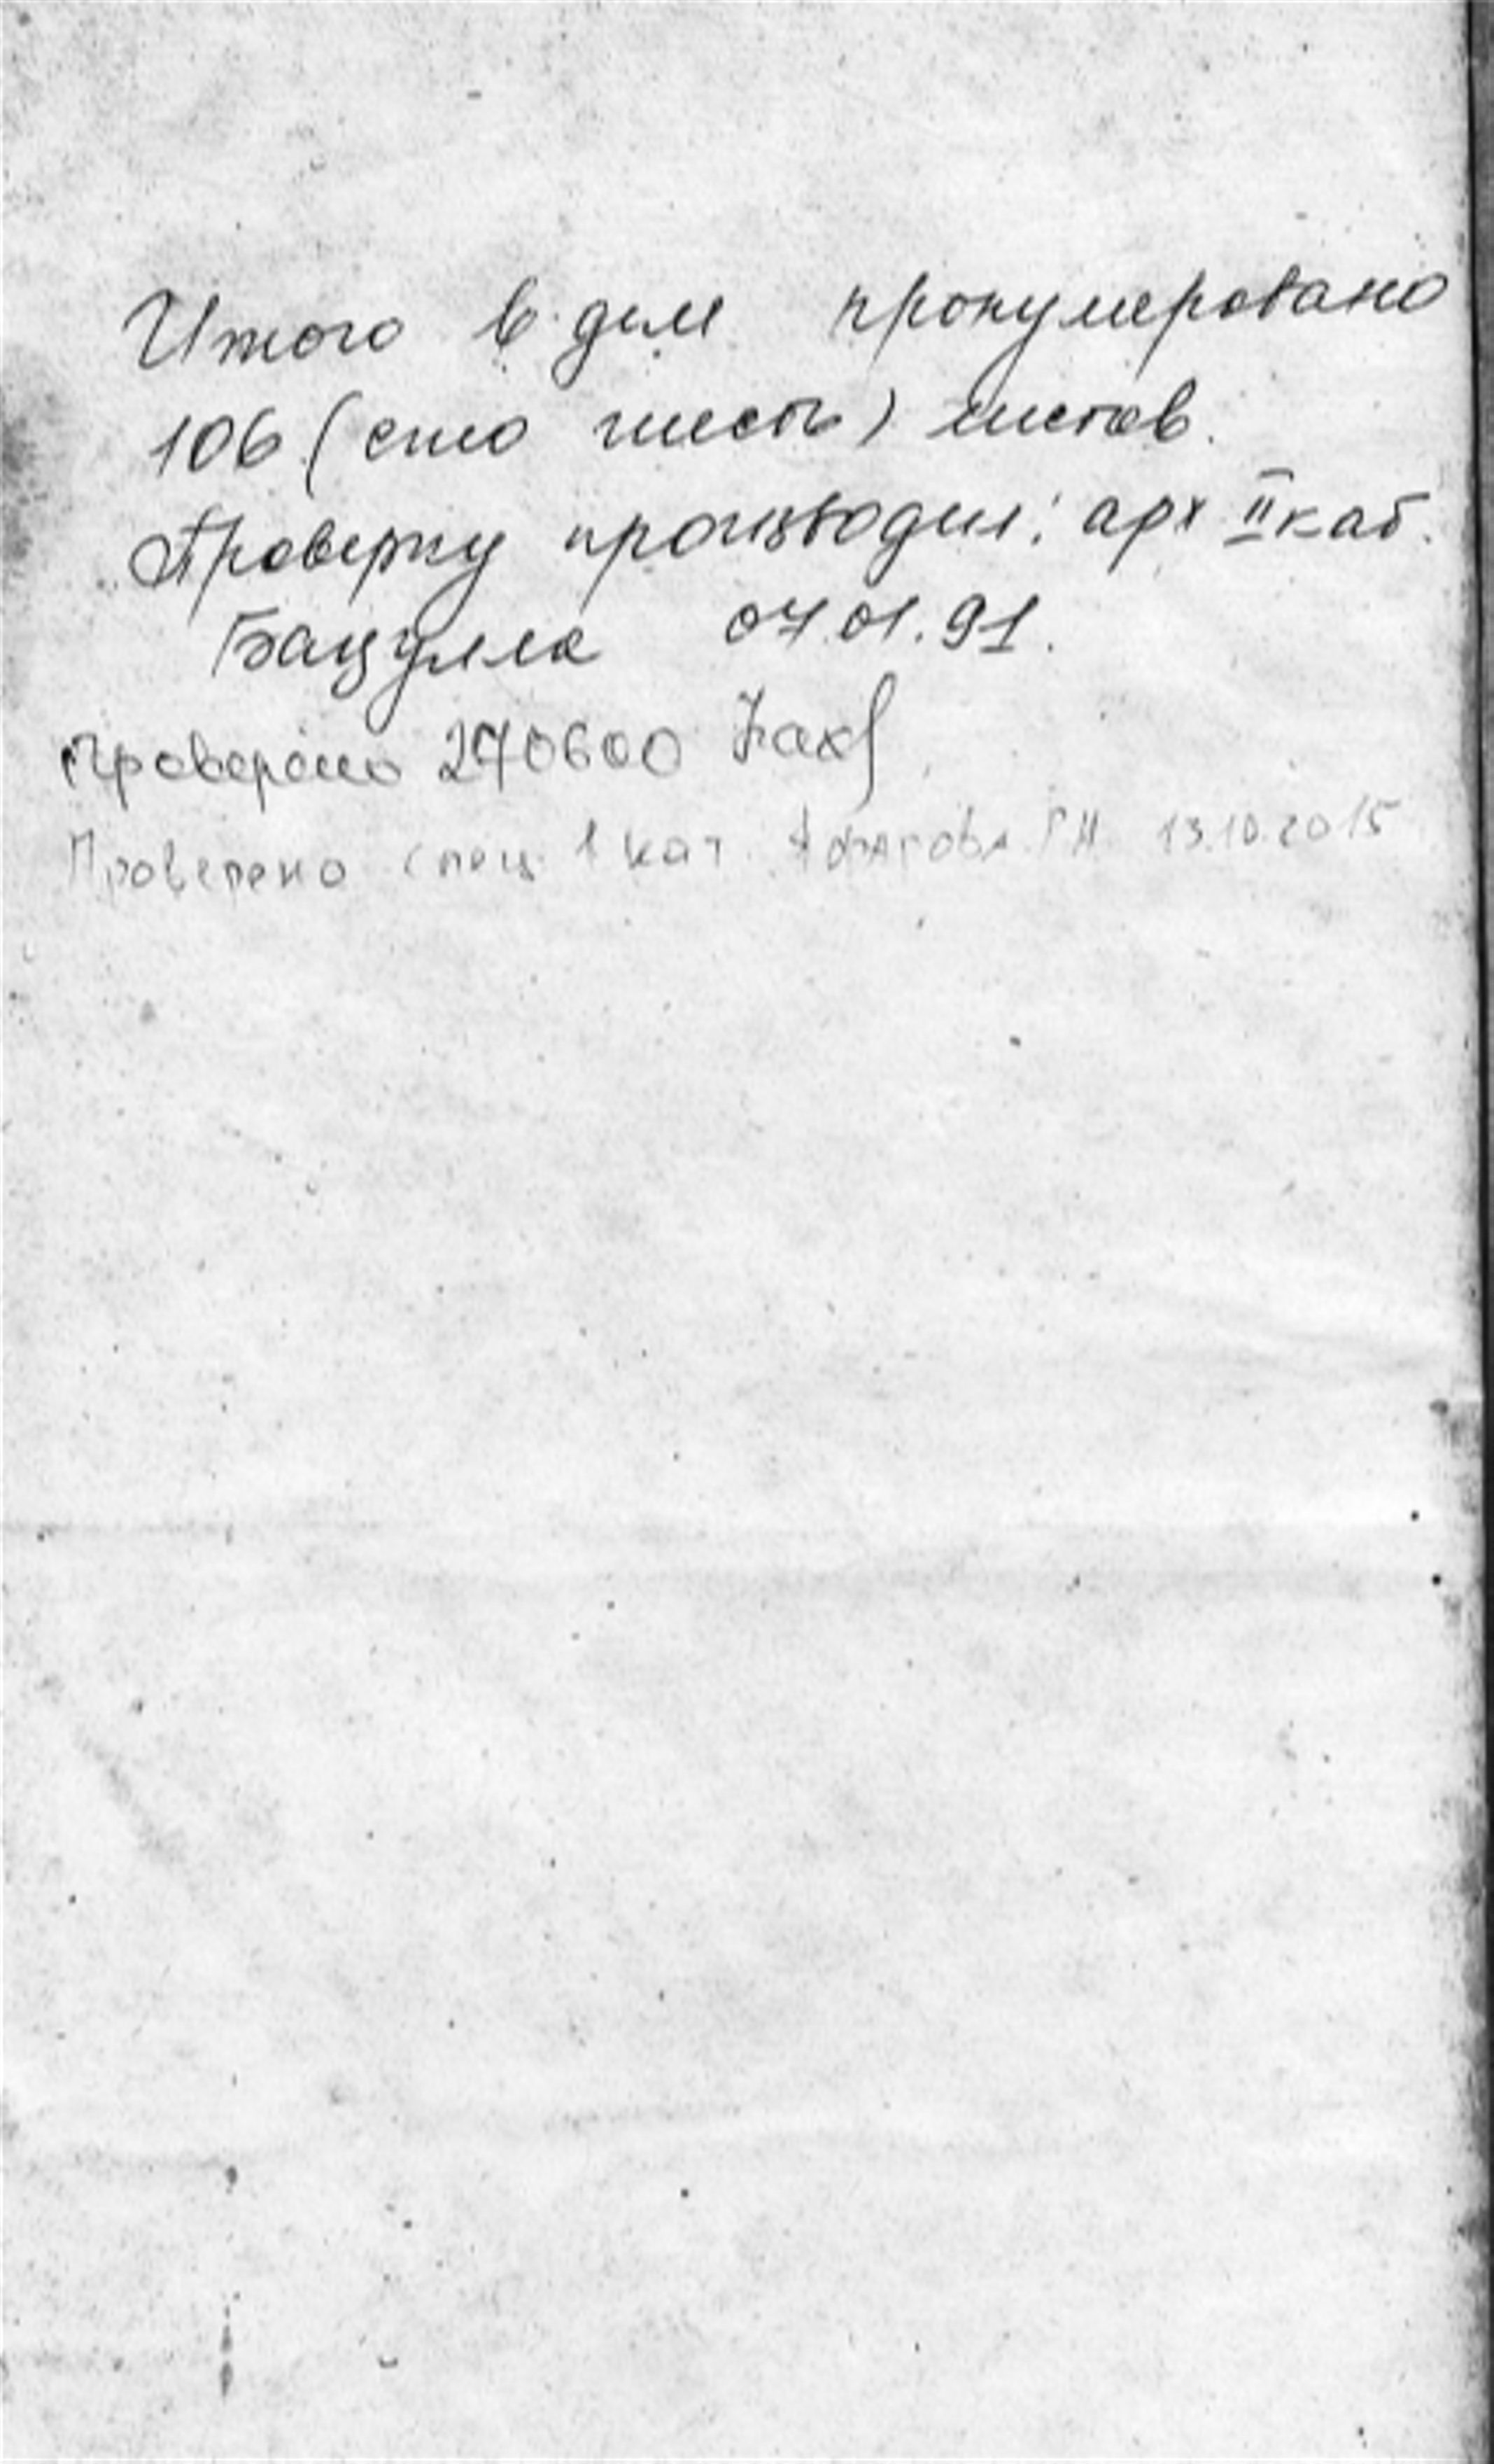 Итого в деле пронумеровано
106 (сто шесть) листов.
Проверку производил: арх II каб.
Бацулла 07.01.91.
Проверено 270600
Проверено спец. 1 кат. Г Н 13.10.2015